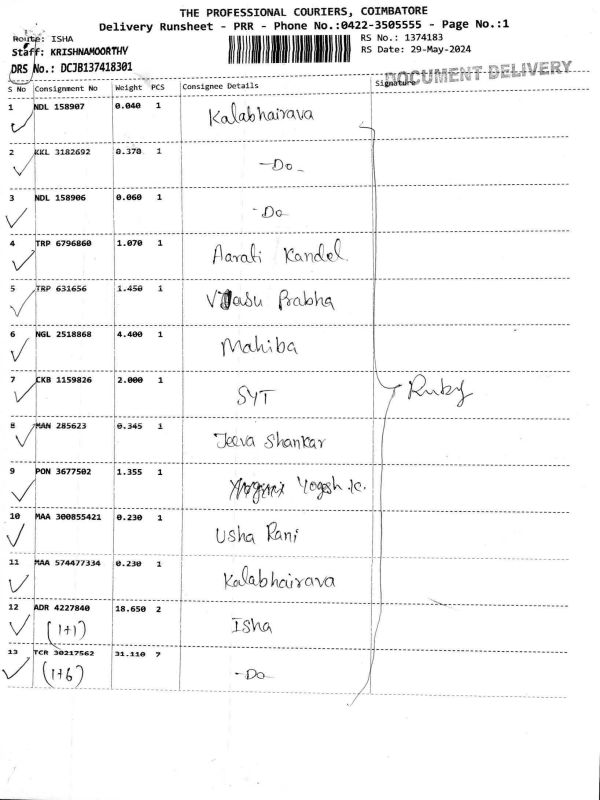 THE PROFESSIONAL COURIERS, COIMBATORE
Delivery Runsheet - PRR - Phone No.:0422-3505555 - Page No.:1
Route: ISHA
RS No.: 1374183
Staff: KRISHNAMOORTHY
RS Date: 29-May-2024
DRS No.: DCJB137418301
DOCUMENT DELIVERY
S No Consignment No Weight PCS Consignee Details Signature
1 NDL 158907 0.040 1 Kalabhairava
2 KKL 3182692 0.370 1 -Do-
3 NDL 158906 0.060 1 -Do-
4 TRP 6796860 1.070 1 Aarati Kandel.
5 TRP 631656 1.450 1 Vasu Prabha
6 NGL 2518868 4.400 1 Mahiba
7 CKB 1159826 2.000 1 SYT
Ruby
8 MAN 285623 0.345 1 Jeeva Shankar
9 PON 3677502 1.355 1 Yogesh .K.
10 MAA 300855421 0.230 1 Usha Rani
11 MAA 574477334 0.230 1 Kalabhairava
12 ADR 4227840 18.650 2 Isha
(1+1)
13 TCR 30217562 31.110 7 -Do-
(1+6)